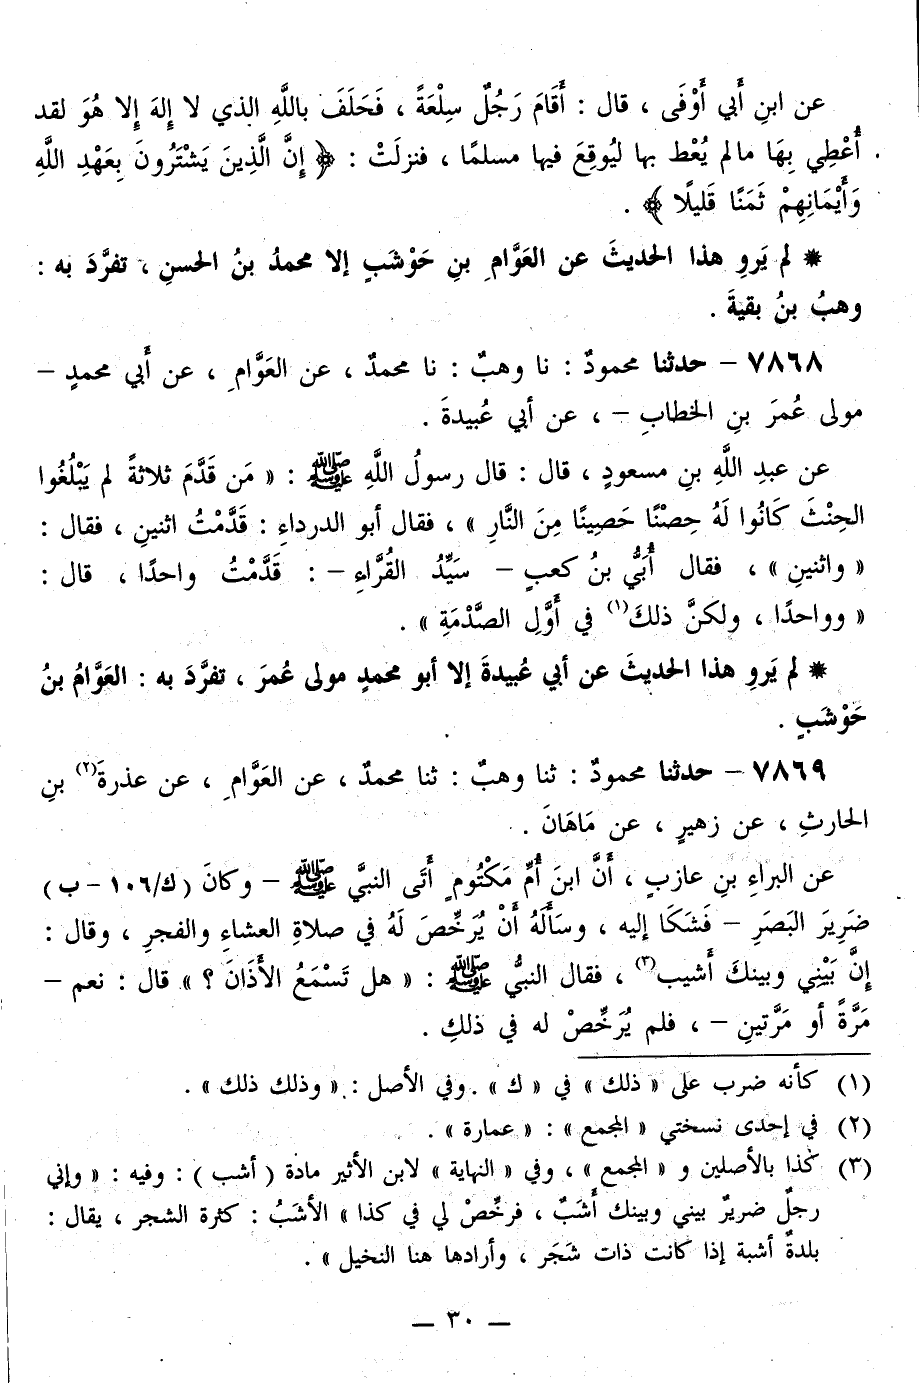 عن ابنِ أَبي أَوْفَى ، قال : أَقَامَ رَجُلٌ سِلْعَةً ، فَحَلَفَ باللَّهِ الذي لا إِلهَ إِلا هُوَ لقد
أُعْطِي بِهَا مالم يُعْط بها ليُوقِعَ فيها مسلمًا ، فنزلَتْ : ﴿ إِنَّ الَّذِينَ يَشْتَرُونَ بِعَهْدِ اللَّهِ
وَأَيْمَانِهِمْ ثَمَنًا قَلِيلًا ﴾ .
* لم يَروِ هذا الحديثَ عن العَوَّامِ بنِ حَوْشَبٍ إلا محمدُ بنُ الحسنِ ، تفرَّدَ به :
وهبُ بنُ بقيةَ .
٧٨٦٨ – حدثنا محمودٌ : نا وهبٌ : نا محمدٌ ، عن العَوَّامِ ، عن أَبي محمدٍ –
مولى عُمرَ بنِ الخطابِ – ، عن أبي عُبيدةَ .
عن عبدِ اللَّهِ بنِ مسعودٍ ، قال : قال رسولُ اللَّهِ ﷺ : « مَن قَدَّمَ ثلاثةً لم يَبْلُغُوا
الحِنْثَ كَانُوا لَهُ حِصْنًا حَصِينًا مِنَ النَّارِ » ، فقال أبو الدرداءِ : قَدَّمْتُ اثنينِ ، فقال :
« واثنينِ » ، فقال أُبَيُّ بنُ كعبٍ – سَيِّدُ القُرَّاءِ – : قَدَّمْتُ واحدًا ، قال :
« وواحدًا ، ولكنَّ ذلكَ(١) في أَوَّلِ الصَّدْمَةِ » .
* لم يَروِ هذا الحديثَ عن أبي عُبيدةَ إلا أبو محمدٍ مولى عُمرَ ، تفرَّدَ به : العَوَّامُ بنُ
حَوْشَبٍ .
٧٨٦٩ – حدثنا محمودٌ : ثنا وهبٌ : ثنا محمدٌ ، عن العَوَّامِ ، عن عذرةَ(٢) بنِ
الحارثِ ، عن زهيرٍ ، عن مَاهَانَ .
عن البراءِ بنِ عازبٍ ، أَنَّ ابنَ أُمِّ مَكْتُومٍ أَتَى النبيَّ ﷺ – وكانَ (ك/١٠٦ – ب)
ضَرِيرَ البَصَرِ – فَشَكَا إليه ، وسأَلَهُ أَنْ يُرَخِّصَ لَهُ في صلاةِ العشاءِ والفجرِ ، وقال :
إِنَّ بَيْنِي وبينكَ أَشيب(٣) ، فقال النبيُّ ﷺ : « هل تَسْمَعُ الأَذَانَ ؟ » قال : نعم –
مَرَّةً أو مَرَّتينِ – ، فلم يُرَخِّصْ له في ذلكِ .
(١) كأنه ضرب على « ذلك » في « ك » . وفي الأصل : « وذلك ذلك » .
(٢) في إحدى نسختي « المجمع » : « عمارة » .
(٣) كذا بالأصلين و « المجمع » ، وفي « النهاية » لابن الأثير مادة ( أشب ) : وفيه : « وإني
رجلٌ ضريرٌ بيني وبينك أَشَبٌ ، فرخِّصْ لي في كذا » الأشَبُ : كثرة الشجر ، يقال :
بلدةٌ أشبة إذا كانت ذات شَجَر ، وأرادها هنا النخيل » .
— ٣٠ —